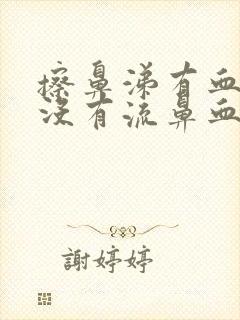 擦鼻涕有血
没有流鼻血
謝婷婷